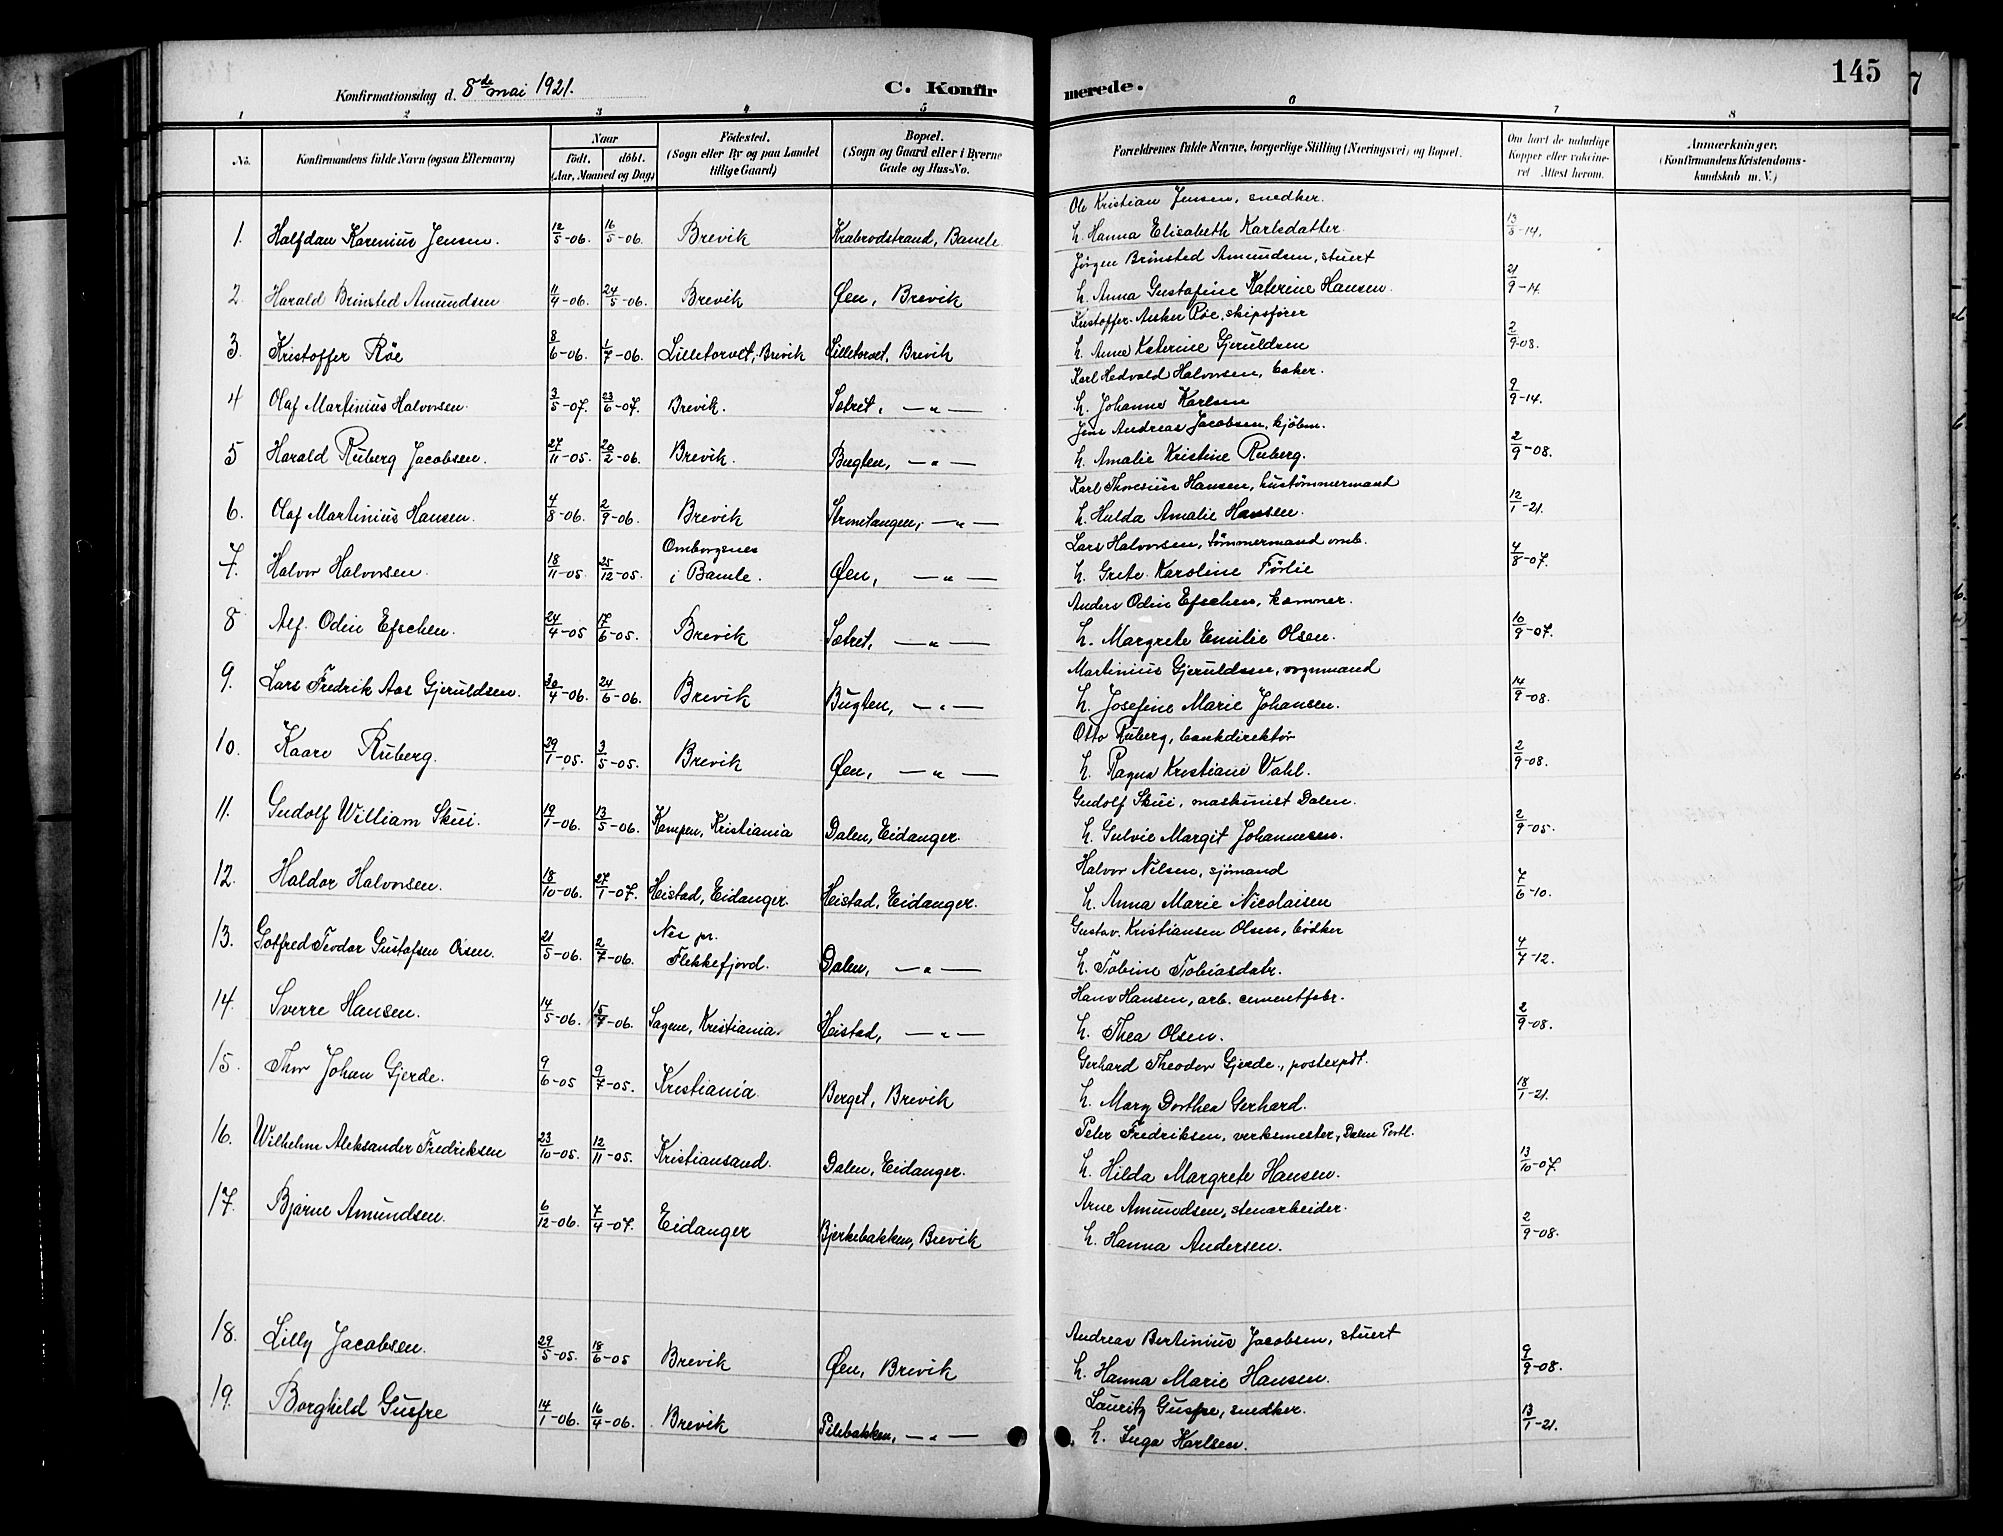 145
Konfirmationsdag d. 8de mai 1921.
C. Konfirmerede.
1 2 3 4 5 6 7 8
No. Konfirmandens fulde Navn (ogsaa Efternavn) Naar födt. döbt. (Aar, Maaned og Dag) Födested. (Sogn eller By og paa Landet tillige Gaard) Bopæl. (Sogn og Gaard eller i Byerne Gade og Hus-No. Forældrenes fulde Navne, borgerlige Stilling (Næringsvei) og Bopæl. Om havt de naturlige Kopper eller vaccineret Attest herom. Anmærkninger, (Konfirmandens Kristendomskundskab m. V.)
Ole Kristian Jensen, snedker.
1. Halfdan Karenius Jensen. 12/5-06. 16/5-06. Brevik Krabrodstrand, Bamle h. Hanna Elisabeth Karlsdatter. 13/8-14.
Jörgen Brinsted Amundsen, stuert
2. Harald Brinsted Amundsen 11/4-06. 24/5-06. Brevik Øen, Brevik h. Anna Gustafine Katerine Hansen. 21/9-14.
Kristoffer Anker Röe, skipsförer
3. Kristoffer Röe 8/6-06. 1/7-06. Lilletorvet, Brevik Lilletorvet, Brevik h. Anna Katerine Gjeruldsen 2/9-08.
Karl Hedvald Halvorsen, baker.
4 Olaf Martinius Halvorsen. 3/5-07. 23/6-07. Brevik. Sætret, —"— h. Johanne Karlsen 9/9-14.
Jens Andreas Jacobsen, kjöbm.
5 Harald Ruberg Jacobsen. 27/11-05. 20/2-06. Brevik. Bugten, —"— h. Amalie Kristine Ruberg. 2/9-08.
Karl Thoresius Hansen, hustömmermand
6. Olaf Martinius Hansen. 4/8-06. 2/9-06. Brevik Strømtangen, —"— h. Hulda Amalie Hansen. 12/1-21.
Lars Halvorsen, tömmermand omb.
7. Halvor Halvorsen. 18/11-05. 25/12-05. Omborgsnes i Bamle. Øen, —"— h. Grete Karoline Förlie 4/8-07.
Anders Odin Efschen, kæmner.
8 Alf Odin Efschen. 24/4-05 17/6-05. Brevik Sætret, —"— h. Margrete Emilie Olsen. 10/9-07.
Martinius Gjeruldsen, vognmand
9. Lars Fredrik Aas Gjeruldsen. 30/4-06. 24/6-06. Brevik Bugten, —"— h. Josefine Marie Johansen. 14/9-08.
Otto Ruberg, bankdirektör
10. Kaare Ruberg. 29/1-05. 3/5-05. Brevik Øen, —"— h. Ragna Kristiane Vahl. 2/9-08.
Gudolf Skui, maskinist Dalen.
11. Gudolf William Skui. 19/1-06. 13/5-06. Kampen, Kristiania Dalen, Eidanger. h. Gulvie Margit Johannesen. 2/9-05.
Halvor Nilsen, sjömand
12. Haldor Halvorsen. 18/10-06. 27/1-07. Heistad, Eidanger. Heistad, Eidanger. h. Anna Marie Nicolaisen 7/6-10.
Gustav Kristiansen Olsen, bödker
13. Gotfred Teodor Gustafsen Olsen. 21/5-06. 2/7-06. Nes pr. Flekkefjord. Dalen, —"— h. Tobine Tobiasdatr. 4/7-12.
Hans Hansen, arb. cementfabr.
14. Sverre Hansen. 14/5-06. 15/7-06. Sagene, Kristiania. Heistad, —"— h. Thea Olsen. 2/9-08.
Gerhard Theodor Gjerde, postexpdt.
15. Thor Johan Gjerde. 9/6-05 9/7-05. Kristiania. Berget, Brevik h. Mary Dorthea Gerhard. 18/1-21.
Peter Fredriksen, verksmester, Dalen Portl.
16. Wilhelm Aleksander Fredriksen 23/10-05. 12/11-05. Kristiansand. Dalen, Eidanger. h. Hilda Margrete Hansen. 13/10-07.
Arne Amundsen, stenarbeider.
17. Bjarne Amundsen. 6/12-06. 7/4-07. Eidanger Bjerkebakken, Brevik h. Hanna Andersen. 2/9-08.
Andreas Bertinius Jacobsen, stuert
18. Lilly Jacobsen. 29/5-05. 18/6-05 Brevik Øen, Brevik h. Hanna Marie Hansen. 9/9-08.
Lauritz Gusfre, snedker.
19. Borghild Gusfre 14/1-06. 16/4-06. Brevik Pilebakken, —"— h. Inga Karlsen. 13/1-21.